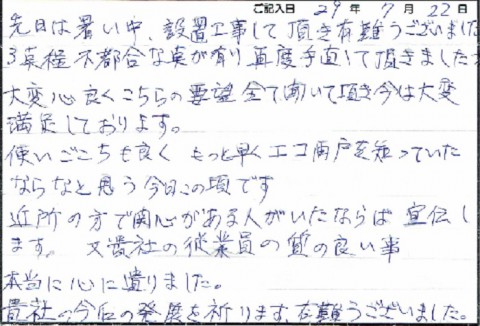 ご記入日 29 年 7 月 22 日
先日は暑い中、設置工事して頂き有難うございました
3点程不都合な点が有り再度手直して頂きましたが
大変心良くこちらの要望全て聞いて頂き今は大変
満足しております。
使いごこちも良く もっと早くエコ雨戸を知っていた
ならなと思う今日この頃です
近所の方で関心がある人がいたならば宣伝し
ます。 又貴社の従業員の質の良い事
本当に心に遺りました。
貴社の今后の発展を祈ります、有難うございました。